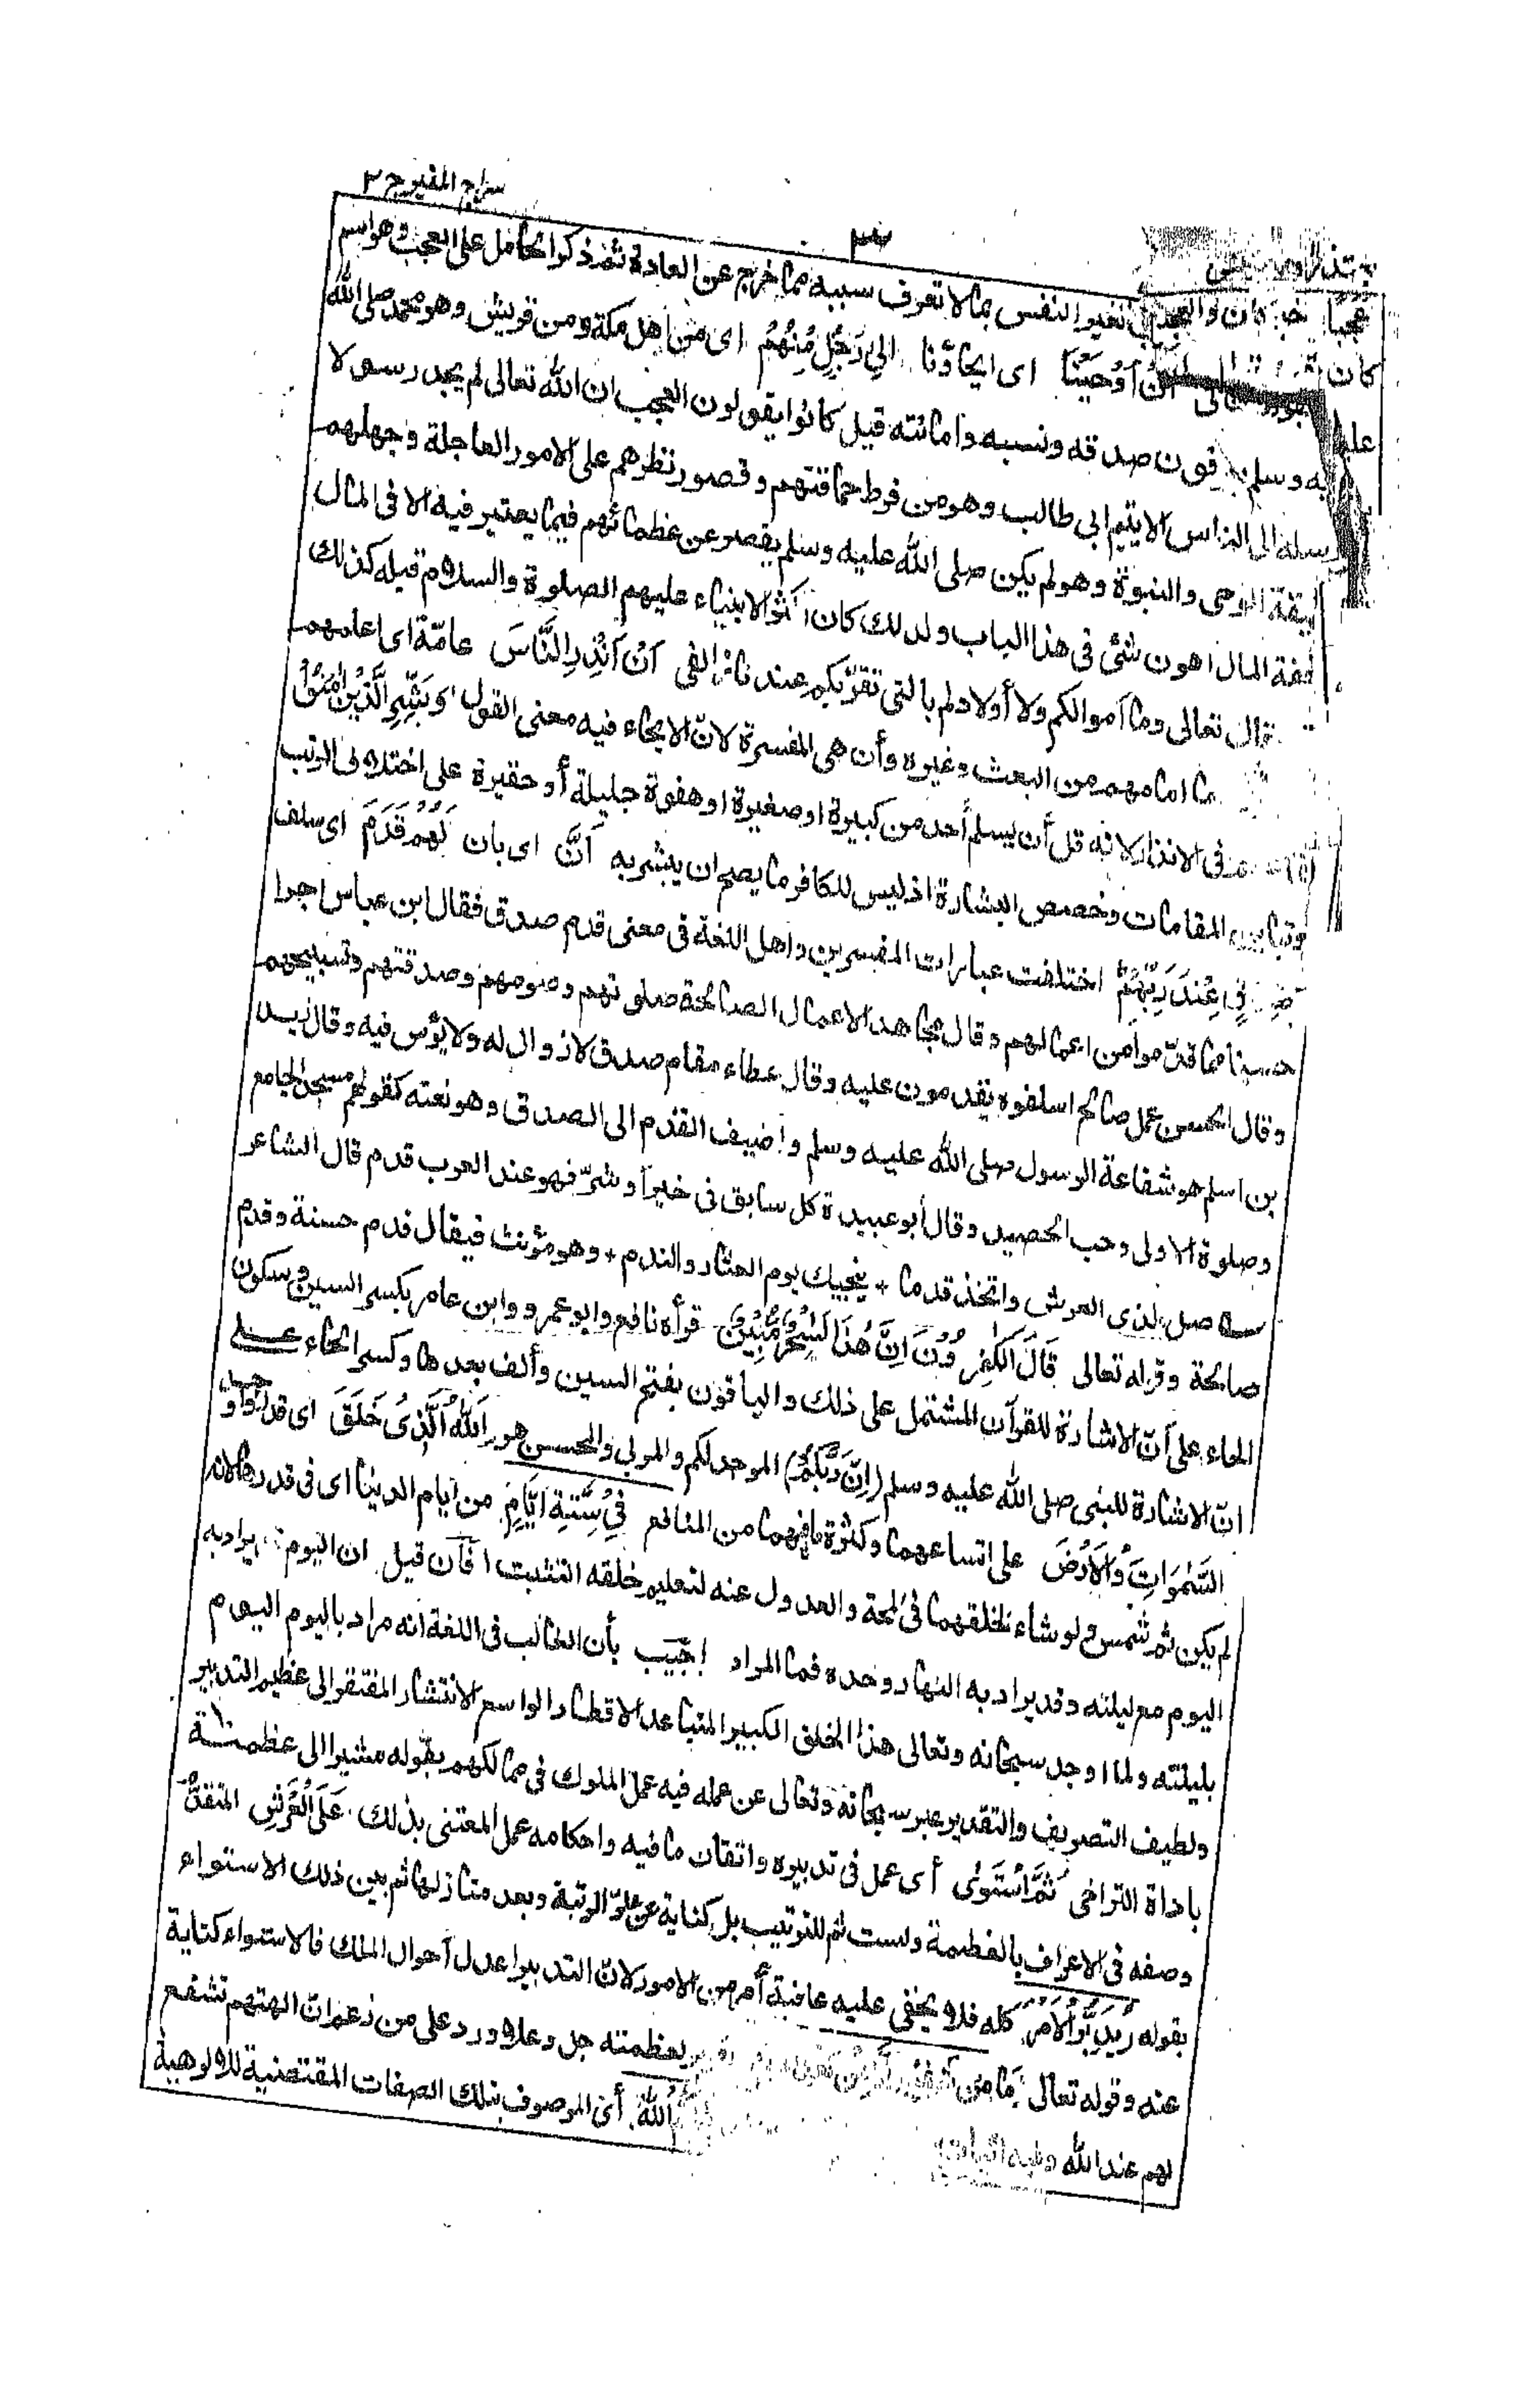 سراج المنير ج ٢
٣
عجبا خبر كان والعجب تغير النفس بما لا تعرف سببه مما خرج عن العادة ثم ذكر الحامل على العجب وهو اسم
كان تعالى أَنْ أَوْحَيْنَا اى ايحاؤنا إِلىٰ رَجُلٍ مِّنْهُمْ اى من اهل مكة ومن قريش وهو محمد صلى الله
عليه وسلم فون صدقه ونسبه وامانته قيل كانوا يقولون العجب ان الله تعالى لم يجد رسولا
يرسله الى الناس الا يتيم ابى طالب وهو من فرط حماقتهم وقصور نظرهم على الامور العاجلة وجهلهم
الوحى والنبوة وهو لم يكن صلى الله عليه وسلم يقصر عن عظمائهم فيما يعتبر فيه الا فى المال
المال اهون شئ فى هذا الباب ولذلك كان اكثر الانبياء عليهم الصلوة والسلام قبله كذلك
قال تعالى وما اموالكم ولا أولادكم بالتى تقرّبكم عندنا زلفى أَنْ أَنْذِرِ النَّاسَ عامّة اى اعلمهم
ما امامهم من البعث وغيره وأن هى المفسرة لانّ الايحاء فيه معنى القول وَبَشِّرِ الَّذِيْنَ اٰمَنُوْا
فى الانذار لانه قل أن يسلم أحد من كبيرة او صغيرة او هفوة جليلة أو حقيرة على اختلاف الرتب
وتباين المقامات وخصص البشارة اذ ليس للكافر ما يصح ان يبشر به أَنَّ اى بان لَهُمْ قَدَمَ اى سلف
عِنْدَ رَبِّهِمْ اختلفت عبارات المفسرين واهل اللغة فى معنى قدم صدق فقال ابن عباس اجرا
حسنا مما قدّموا من اعمالهم وقال مجاهد الاعمال الصالحة صلوتهم وصومهم وصدقتهم وتسبيحهم
وقال الحسن عمل صالح اسلفوه يقدمون عليه وقال عطاء مقام صدق لا زوال له ولا بؤس فيه وقال زيد
بن اسلم هو شفاعة الرسول صلى الله عليه وسلم واضيف القدم الى الصدق وهو نعته كقولهم مسجد الجامع
وصلوة الاولى وحب الحصيد وقال أبو عبيدة كل سابق فى خير أو شرّ فهو عند العرب قدم قال الشاعر
صل لذى العرش واتخذ قدما * ينجيك يوم العثار والندم * وهو مؤنث فيقال قدم حسنة وقدم
صالحة وقوله تعالى قَالَ الْكٰفِرُوْنَ اِنَّ هٰذَا لَسِحْرٌ مُّبِيْنٌ قرأه نافع وابو عمرو وابن عامر بكسر السين وسكون
الحاء على أنّ الاشارة للقرآن المشتمل على ذلك والباقون بفتح السين وألف بعدها وكسر الحاء على
انّ الاشارة للنبى صلى الله عليه وسلم (اِنَّ رَبَّكُمُ) الموجد لكم والمربى والمحسن هو اَللهُ الَّذِىْ خَلَقَ اى قدّر وأوجد
السَّمٰوَاتِ وَالْأَرْضَ على اتساعهما وكثرة ما فيهما من المنافع فِىْ سِتَّةِ اَيَّامٍ من أيام الدنيا اى فى قدرها لانه
لم يكن ثم شمس ولو شاء لخلقهما فى لمحة والعدول عنه لتعليم خلقه التثبت فَاِن قيل ان اليوم يراد به
اليوم مع ليلته وقد يراد به النهار وحده فما المراد اجيب بأن الغالب فى اللغة انه مراد باليوم اليوم
بليلته ولما اوجد سبحانه وتعالى هذا الخلق الكبير المتباعد الاقطار الواسع الانتشار المفتقر الى عظيم التدبير
ولطيف التصريف والتقدير عبر سبحانه وتعالى عن عمله فيه عمل الملوك فى ممالكهم بقوله مشيرا الى عظمته
باداة التراخى ثُمَّ اسْتَوٰى أى عمل فى تدبيره واتقان ما فيه واحكامه عمل المعتنى بذلك عَلَى الْعَرْشِ المتقدّم
وصفه فى الاعراف بالعظمة وليست ثم للترتيب بل كناية عن علوّ الرتبة وبعد منازلها ثم بين ذلك الاستواء
بقوله يُدَبِّرُ الْأَمْرَ كله فلا يخفى عليه عاقبة أمر من الامور لانّ التدبير اعدل أحوال الملك فالاستواء كناية
عنه وقوله تعالى مَا مِنْ شَفِيْعٍ لعظمته جل وعلا ورد على من زعم انّ الهتهم تشفع
لهم عند الله وفيه اثبات اَللهُ أى الموصوف بتلك الصفات المقتضية للالوهية